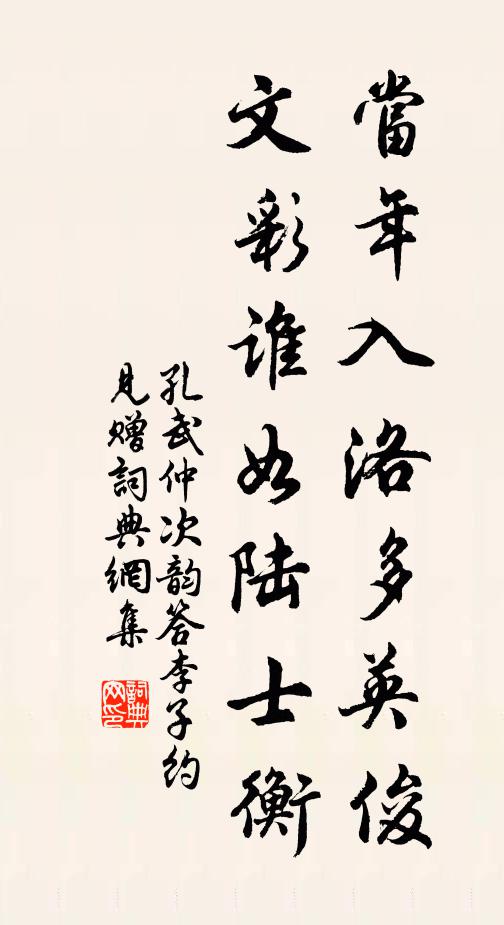 當年入洛多英俊
文彩誰如陆士衡
孔武仲次韵答李子約
見贈詞典網集
詞典
网印